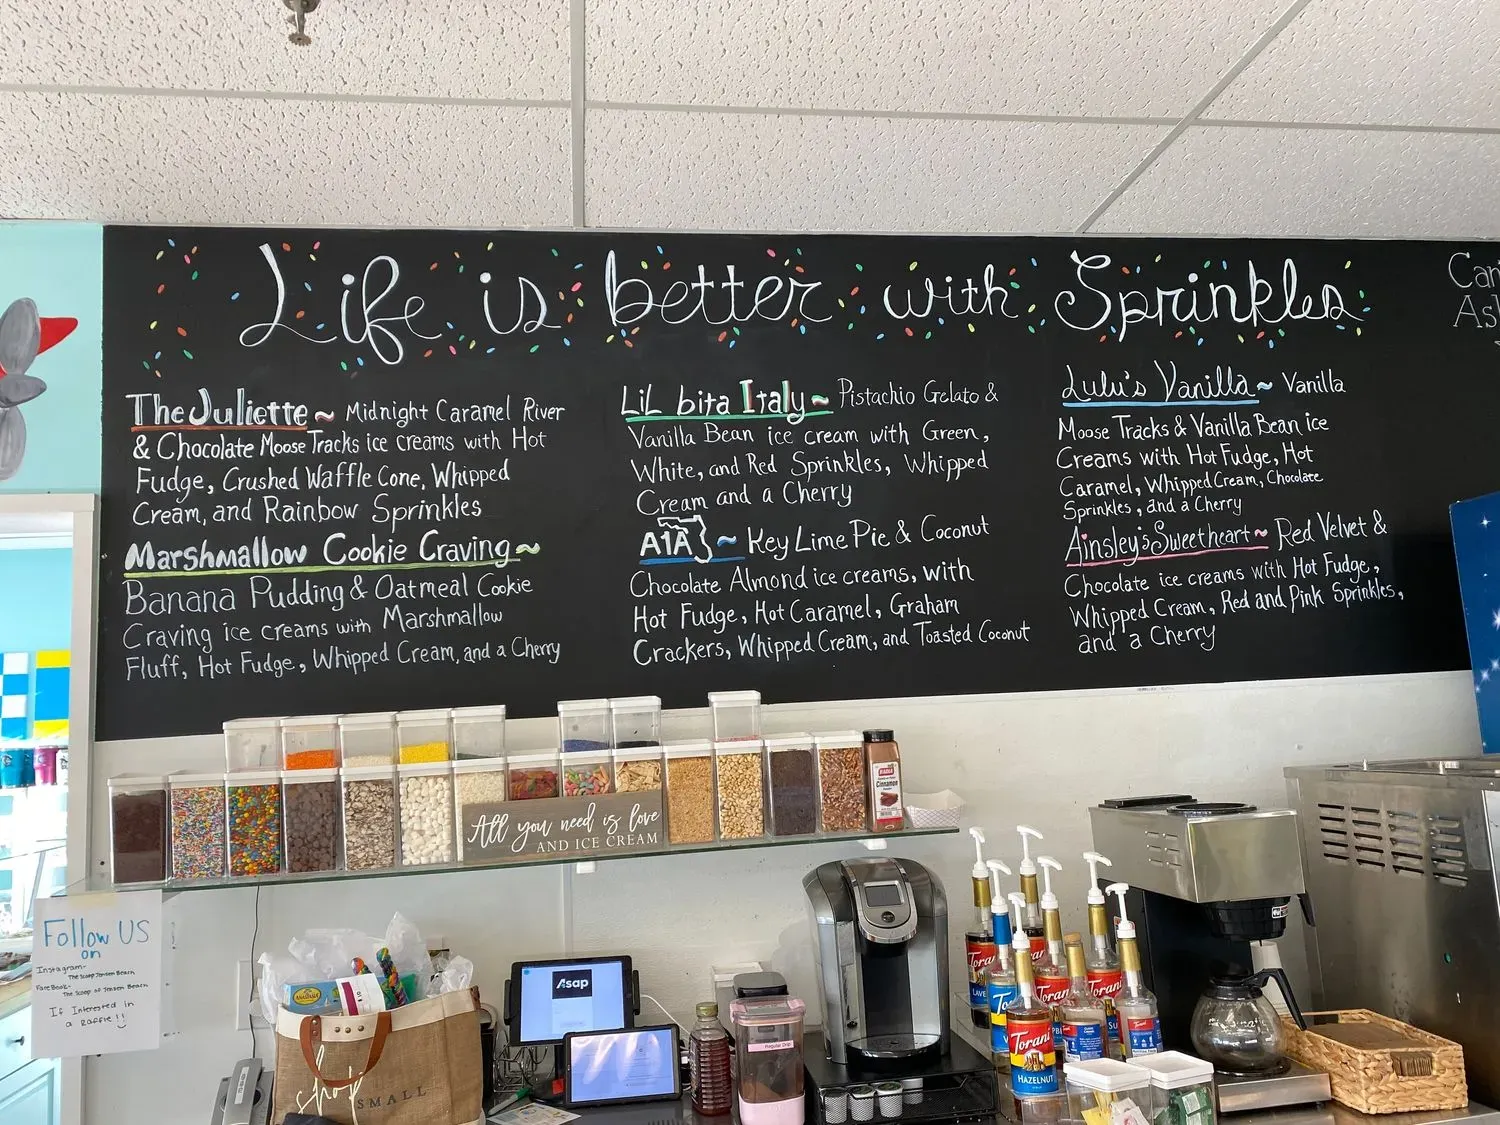 Life is better with Sprinkles
Can
As
The Juliette ~ Midnight Caramel River
& Chocolate Moose Tracks ice creams with Hot
Fudge, Crushed Waffle Cone, Whipped
Cream, and Rainbow Sprinkles
Marshmallow Cookie Craving ~
Banana Pudding & Oatmeal Cookie
Craving ice creams with Marshmallow
Fluff, Hot Fudge, Whipped Cream, and a Cherry
LiL bita Italy ~ Pistachio Gelato &
Vanilla Bean ice cream with Green,
White, and Red Sprinkles, Whipped
Cream and a Cherry
A1A ~ Key Lime Pie & Coconut
Chocolate Almond ice creams, with
Hot Fudge, Hot Caramel, Graham
Crackers, Whipped Cream, and Toasted Coconut
Lulu's Vanilla ~ Vanilla
Moose Tracks & Vanilla Bean ice
Creams with Hot Fudge, Hot
Caramel, Whipped Cream, Chocolate
Sprinkles, and a Cherry
Ainsley's Sweetheart ~ Red Velvet &
Chocolate ice creams with Hot Fudge,
Whipped Cream, Red and Pink Sprinkles,
and a Cherry
All you need is love
AND ICE CREAM
BADIA
Cinnamon
Follow US
on
Instagram-
The Scoop Jensen Beach
FaceBook-
The Scoop of Jensen Beach
If Interested in
a Raffle!!
Asap
shop
SMALL
Regular Drip
Torani
HAZELNUT
Torani
Torani